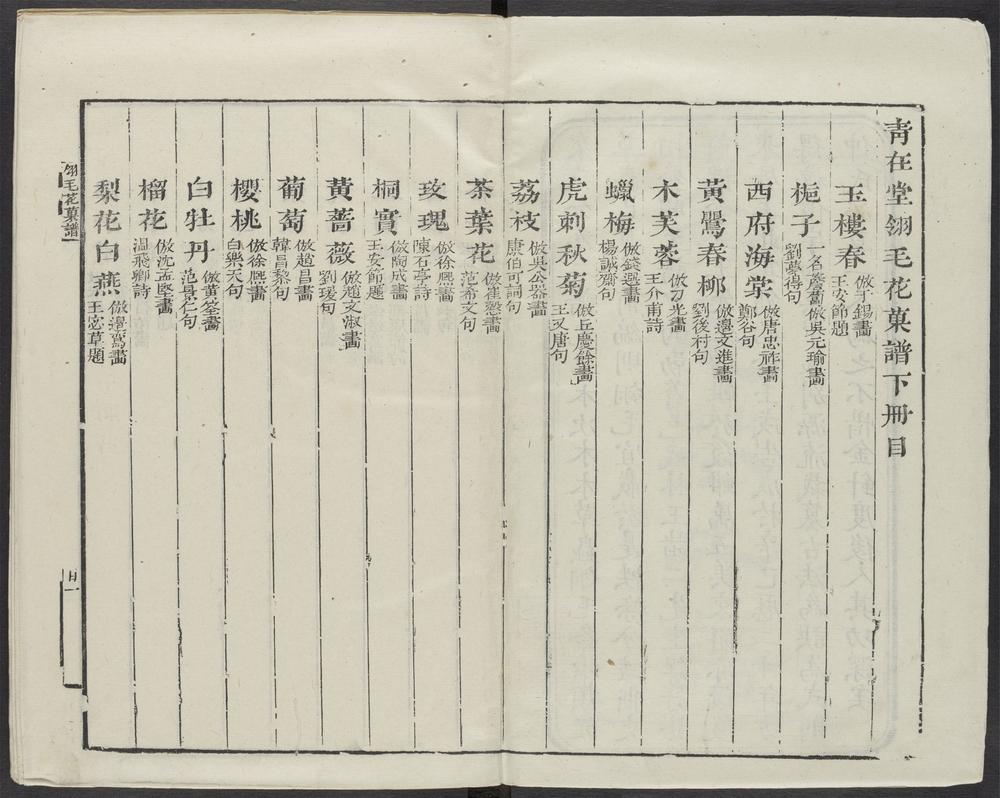 青在堂翎毛花菓譜下冊目
玉樓春 倣于錫畵 王安節題
梔子 一名薝蔔倣吳元瑜畵 劉夢得句
西府海棠 倣唐忠祚畵 鄭谷句
黃鸎春柳 倣邊文進畵 劉後村句
木芙蓉 倣刁光畵 王介甫詩
蠟梅 倣錢選畵 楊誠齋句
虎刺秋菊 倣丘慶餘畵 王又唐句
荔枝 倣吳公器畵 唐伯可詞句
茶葉花 倣崔慤畵 范希文句
玫瑰 倣徐熈畵 陳石亭詩
桐實 倣陶成畵 王安節題
黃薔薇 倣趙文淑畵 劉瑗句
葡萄 倣趙昌畵 韓昌黎句
櫻桃 倣徐熈畵 白樂天句
白牡丹 倣黃筌畵 范景仁句
榴花 倣沈孟堅畵 温飛卿詩
梨花白燕 倣邊鸞畵 王宓草題
翎毛花菓譜
目一